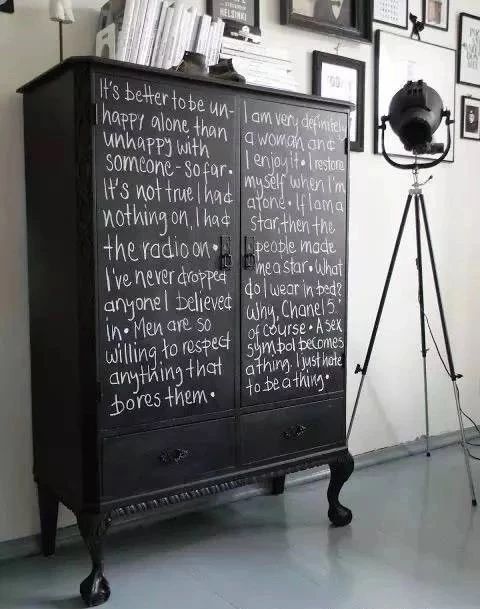 HELSINKI
It's better to be un-
happy alone than
unhappy with
someone - so far •
It's not true I had
nothing on, I had
the radio on •
I've never dropped
anyone I believed
in • Men are so
willing to respect
anything that
bores them •
I am very definitely
a woman and
I enjoy it • I restore
myself when I'm
alone • If I am a
star, then the
people made
me a star • What
do I wear in bed?
Why, Chanel 5,
of course • A sex
symbol becomes
a thing. I just hate
to be a thing •